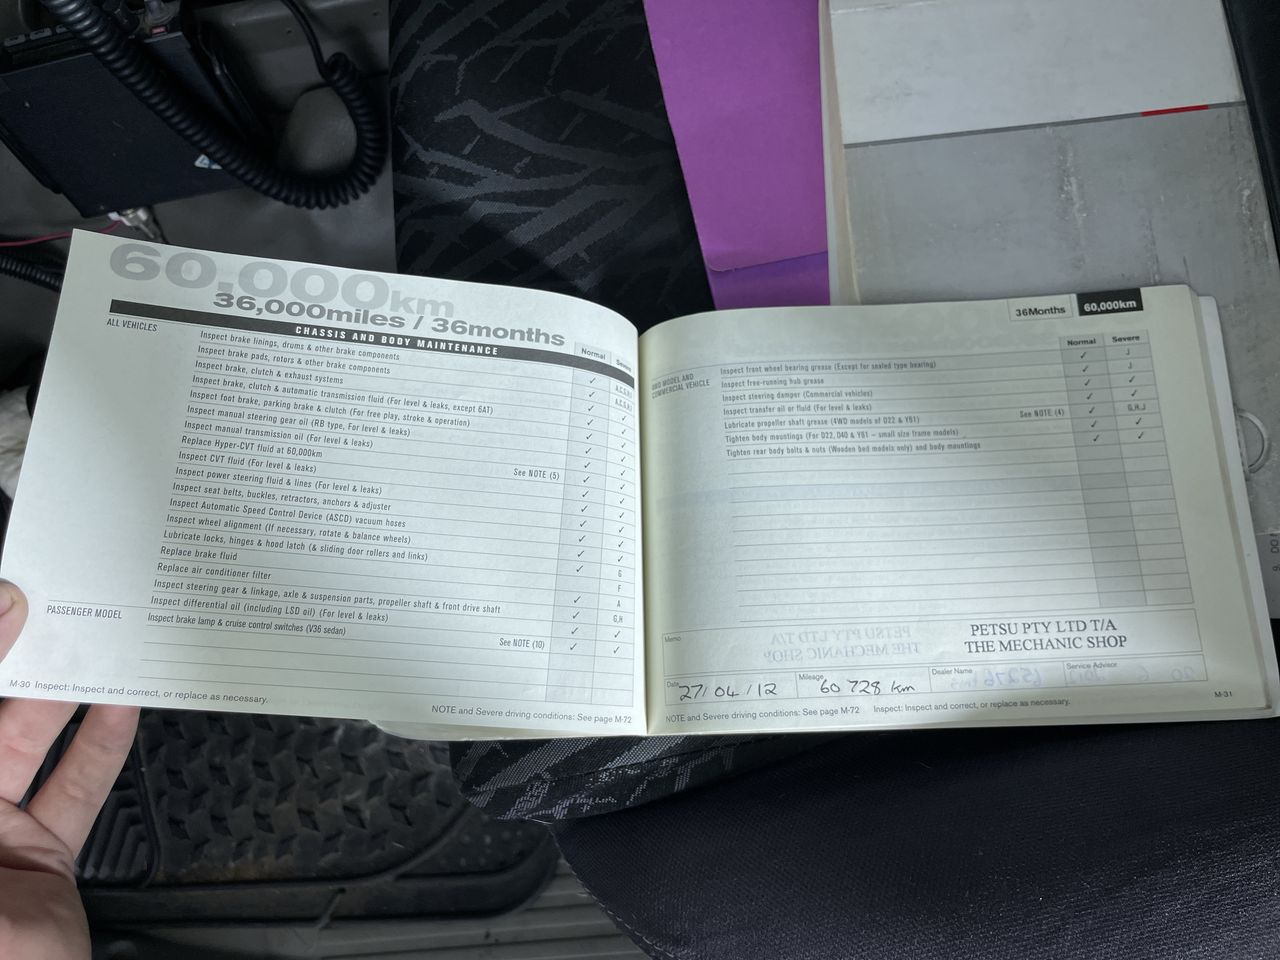 60,000km
36,000miles / 36months
CHASSIS AND BODY MAINTENANCE
Normal Severe
ALL VEHICLES
Inspect brake linings, drums & other brake components
Inspect brake pads, rotors & other brake components
Inspect brake, clutch & exhaust systems
Inspect brake, clutch & automatic transmission fluid (For level & leaks, except 6AT)
Inspect foot brake, parking brake & clutch (For free play, stroke & operation)
Inspect manual steering gear oil (RB type, For level & leaks)
Inspect manual transmission oil (For level & leaks)
Replace Hyper-CVT fluid at 60,000km See NOTE (5)
Inspect CVT fluid (For level & leaks)
Inspect power steering fluid & lines (For level & leaks)
Inspect seat belts, buckles, retractors, anchors & adjuster
Inspect Automatic Speed Control Device (ASCD) vacuum hoses
Inspect wheel alignment (If necessary, rotate & balance wheels)
Lubricate locks, hinges & hood latch (& sliding door rollers and links)
Replace brake fluid G
Replace air conditioner filter F
Inspect steering gear & linkage, axle & suspension parts, propeller shaft & front drive shaft A
Inspect differential oil (including LSD oil) (For level & leaks) G,H
PASSENGER MODEL
Inspect brake lamp & cruise control switches (V36 sedan) See NOTE (10)
M-30 Inspect: Inspect and correct, or replace as necessary.
NOTE and Severe driving conditions: See page M-72
36Months 60,000km
Normal Severe
MODEL AND COMMERCIAL VEHICLE
Inspect front wheel bearing grease (Except for sealed type bearing) J
Inspect free-running hub grease J
Inspect steering damper (Commercial vehicles)
Inspect transfer oil or fluid (For level & leaks) See NOTE (4)
Lubricate propeller shaft grease (4WD models of D22 & Y61) G,H,J
Tighten body mountings (For D22, D40 & Y61 – small size frame models)
Tighten rear body bolts & nuts (Wooden bed models only) and body mountings
Memo
PETSU PTY LTD T/A
THE MECHANIC SHOP
Date 27/04/12 Mileage 60 728 km Dealer Name Service Advisor
NOTE and Severe driving conditions: See page M-72 Inspect: Inspect and correct, or replace as necessary.
M-31